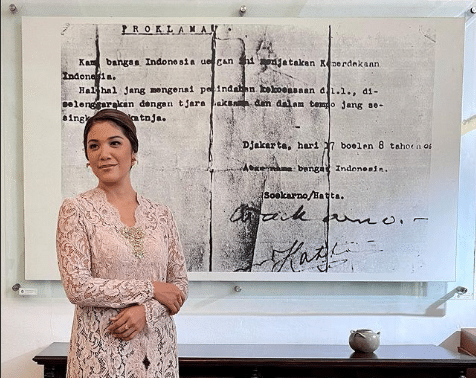 PROKLAMA
Kami bangsa Indonesia dengan ini menjatakan Kemerdekaan
Indonesia.
Hal-hal jang mengenai pemindahan kekoeasaan d.l.l., di-
selenggarakan dengan tjara saksama dan dalam tempo jang se-
singka katnja.
Djakarta, hari 17 boelan 8 tahoen 05
Atas nama bangsa Indonesia.
Soekarno/Hatta.